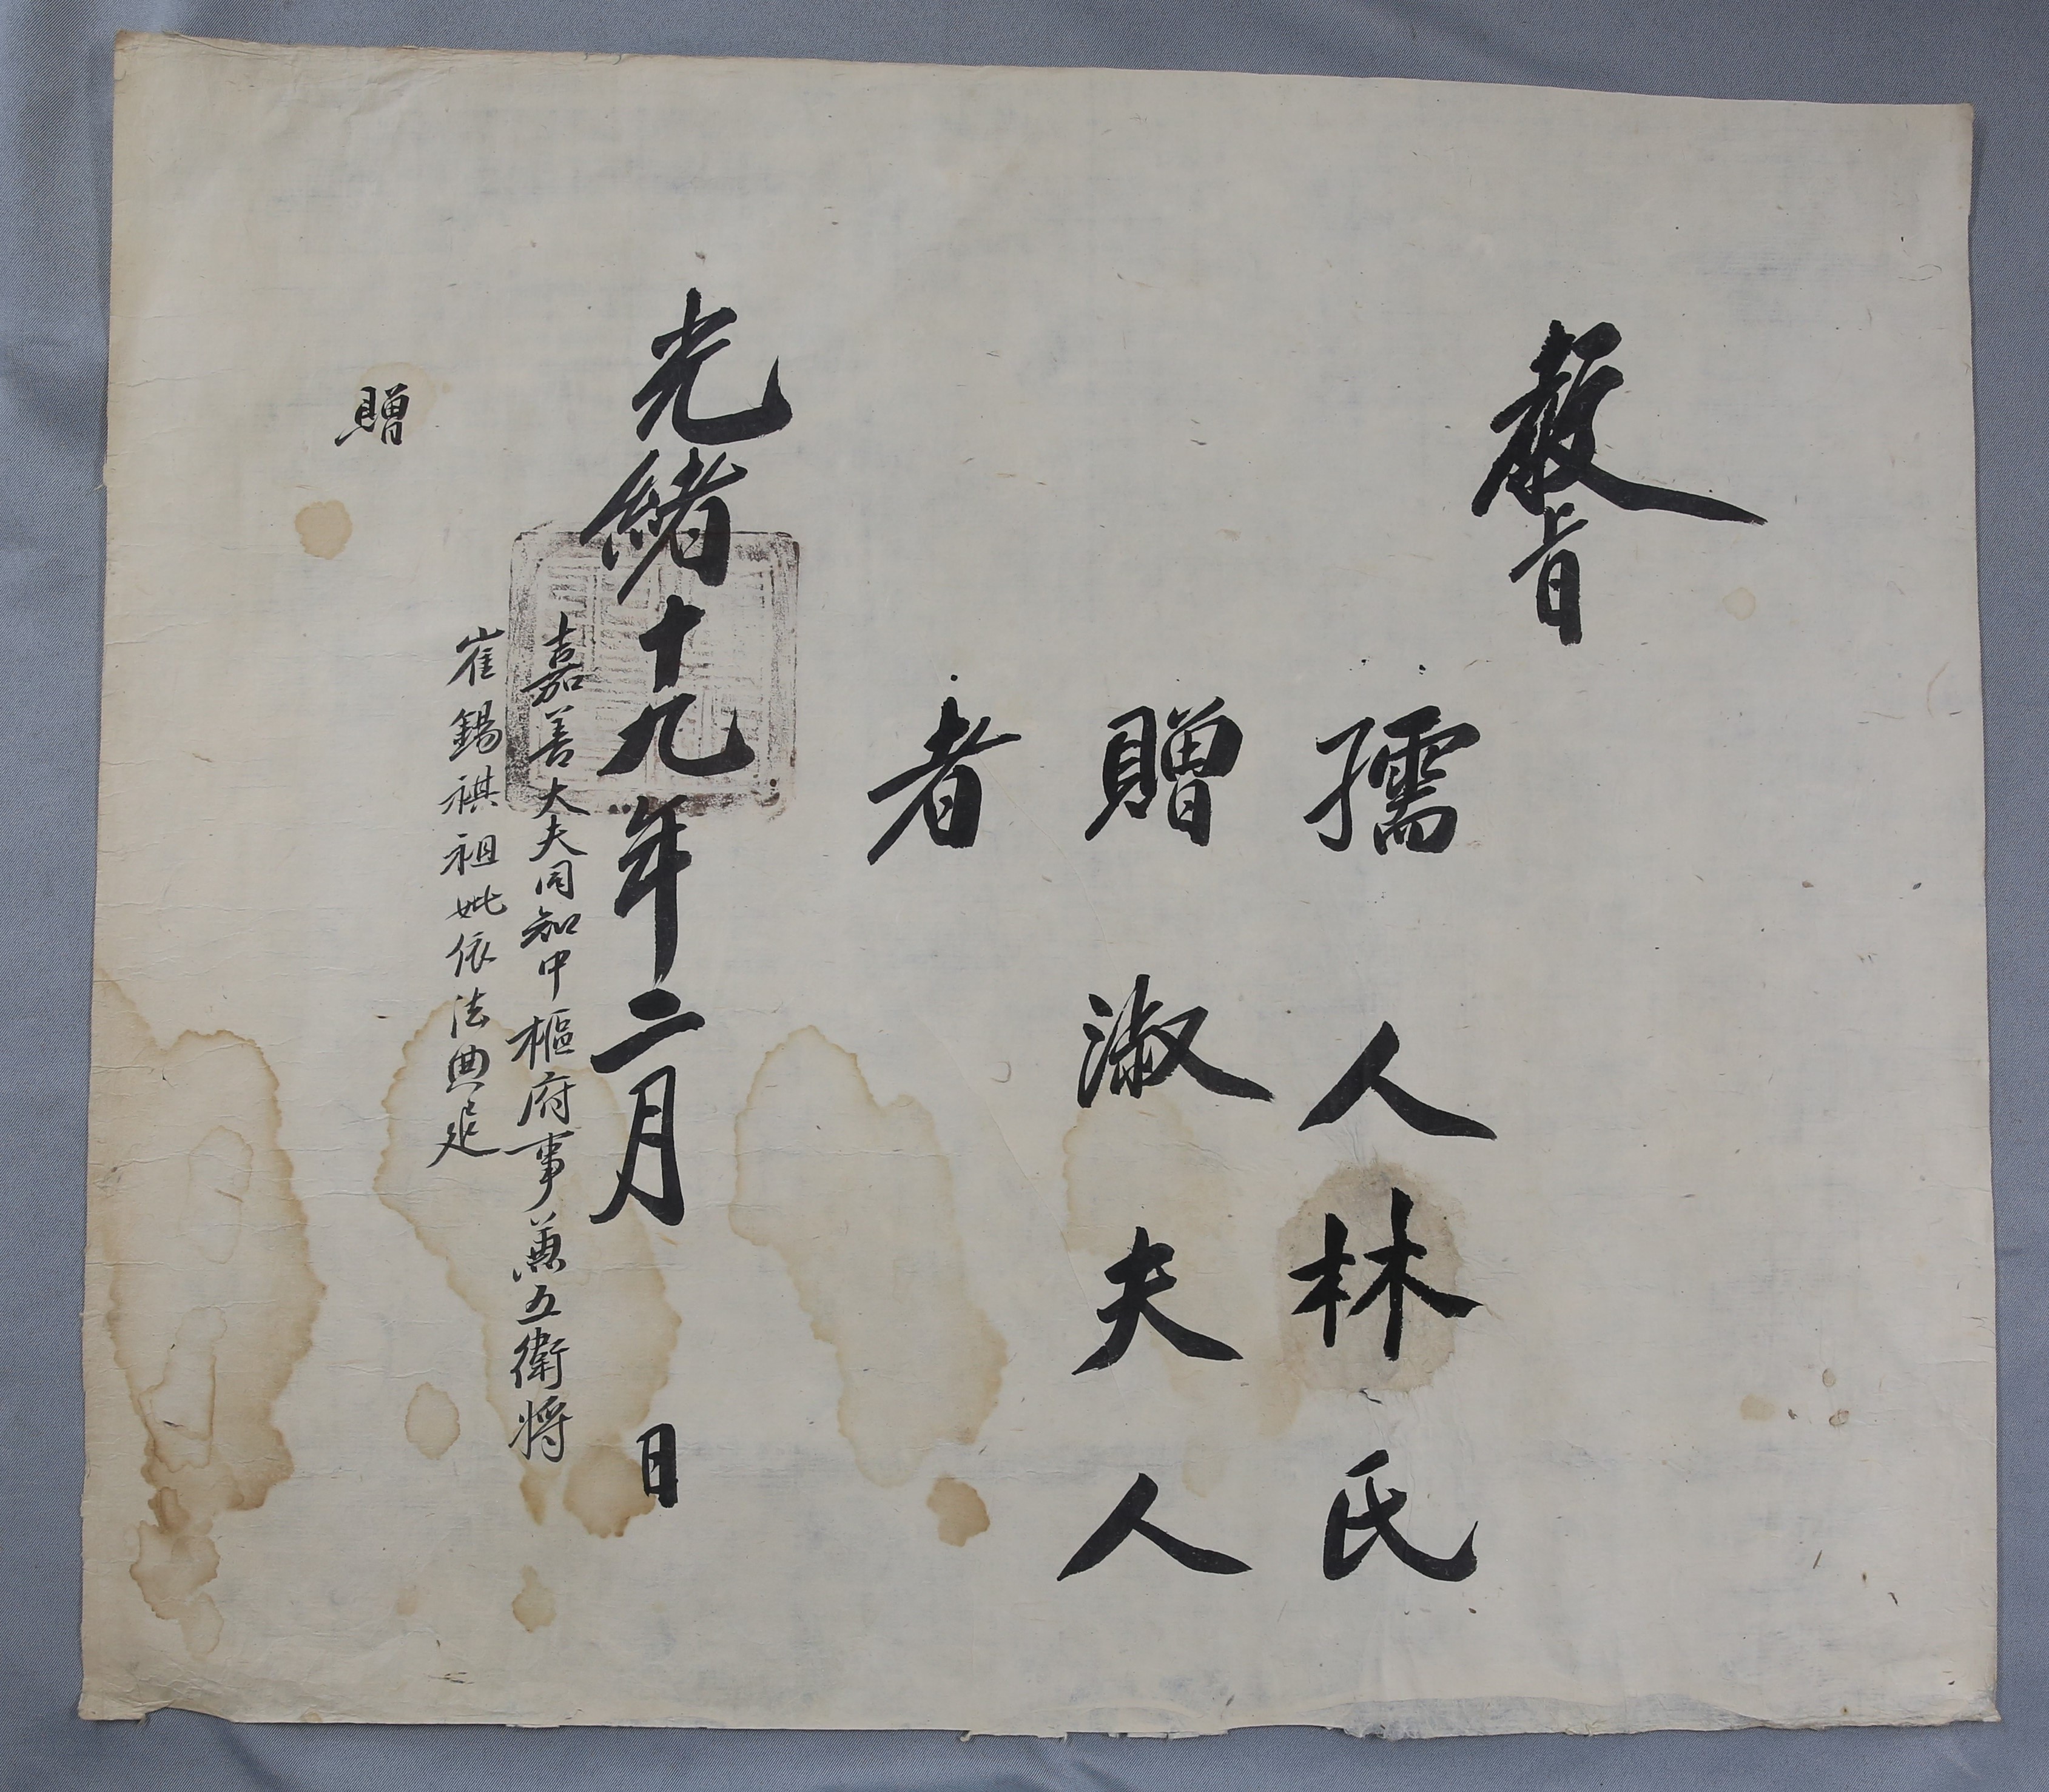 敎旨
孺人林氏
贈淑夫人
者
光緖十九年二月 日
嘉善大夫同知中樞府事兼五衛將
崔錫祺祖妣依法典追
贈